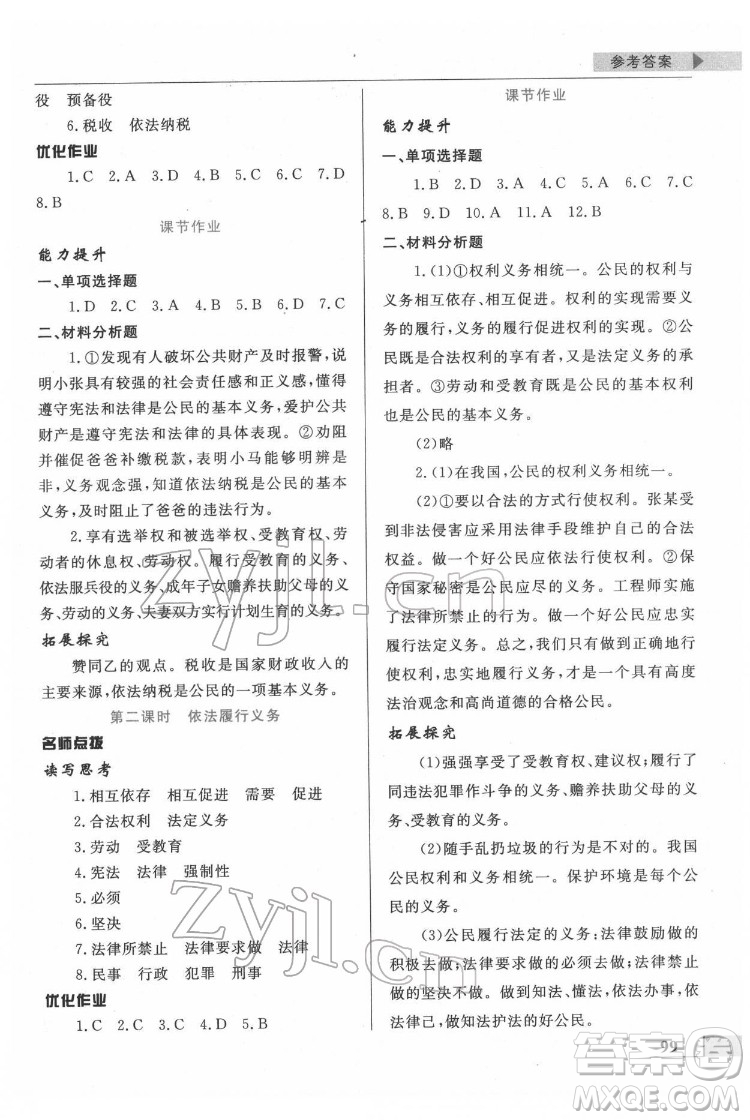 参考答案
役　预备役
6.税收　依法纳税
优化作业
1.C　2.A　3.D　4.B　5.C　6.C　7.D
8.B
课节作业
能力提升
一、单项选择题
1.D　2.C　3.A　4.B　5.A　6.C　7.D
二、材料分析题
1.①发现有人破坏公共财产及时报警，说
明小张具有较强的社会责任感和正义感，懂得
遵守宪法和法律是公民的基本义务，爱护公共
财产是遵守宪法和法律的具体表现。②劝阻
并催促爸爸补缴税款，表明小马能够明辨是
非，义务观念强，知道依法纳税是公民的基本
义务，及时阻止了爸爸的违法行为。
2.享有选举权和被选举权、受教育权、劳
动者的休息权、出版权。履行受教育的义务、
依法服兵役的义务、成年子女赡养扶助父母的义
务、劳动的义务、夫妻双方实行计划生育的义务。
拓展探究
赞同乙的观点。税收是国家财政收入的
主要来源，依法纳税是公民的一项基本义务。
第二课时　依法履行义务
名师点拨
读写思考
1.相互依存　相互促进　需要　促进
2.合法权利　法定义务
3.劳动　受教育
4.宪法　法律　强制性
5.必须
6.坚决
7.法律所禁止　法律要求做　法律
8.民事　行政　犯罪　刑事
优化作业
1.C　2.C　3.A　4.D　5.B
课节作业
能力提升
一、单项选择题
1.B　2.D　3.A　4.B　5.D　6.D　7.C
8.B　9.D　10.A　11.A　12.B
二、材料分析题
1.(1)①权利义务相统一。公民的权利与
义务相互依存、相互促进。权利的实现需要义
务的履行，义务的履行促进权利的实现。②公
民既是合法权利的享有者，又是法定义务的承
担者。③劳动和受教育既是公民的基本权利
也是公民的基本义务。
(2)略
2.(1)在我国，公民的权利义务相统一。
(2)①要以合法的方式行使权利。张某受
到非法侵害应采用法律手段维护自己的合法
权益。做一个好公民应依法行使权利。②保
守国家秘密是公民应尽的义务。工程师实施
了法律所禁止的行为。做一个好公民应忠实
履行法定义务。总之，我们只有正确地行
使权利，忠实履行义务，才能做一个具有高度
法治观念和高尚道德的合格公民。
拓展探究
(1)强强享受了受教育权、建议权；履行了
同违法犯罪作斗争的义务、赡养扶助父母的义
务、受教育的义务。
(2)随手乱扔垃圾的行为是不对的。我国
公民权利和义务相统一。保护环境是每个公
民的义务。
(3)公民履行法定的义务：法律鼓励做的
积极去做；法律要求做的必须去做；法律禁止
做的坚决不做。做到知法、懂法，依法办事，依
法律己，做知法护法的好公民。
99
zyjl.cn
zyjl.cn
答案圈
MXQE.COM